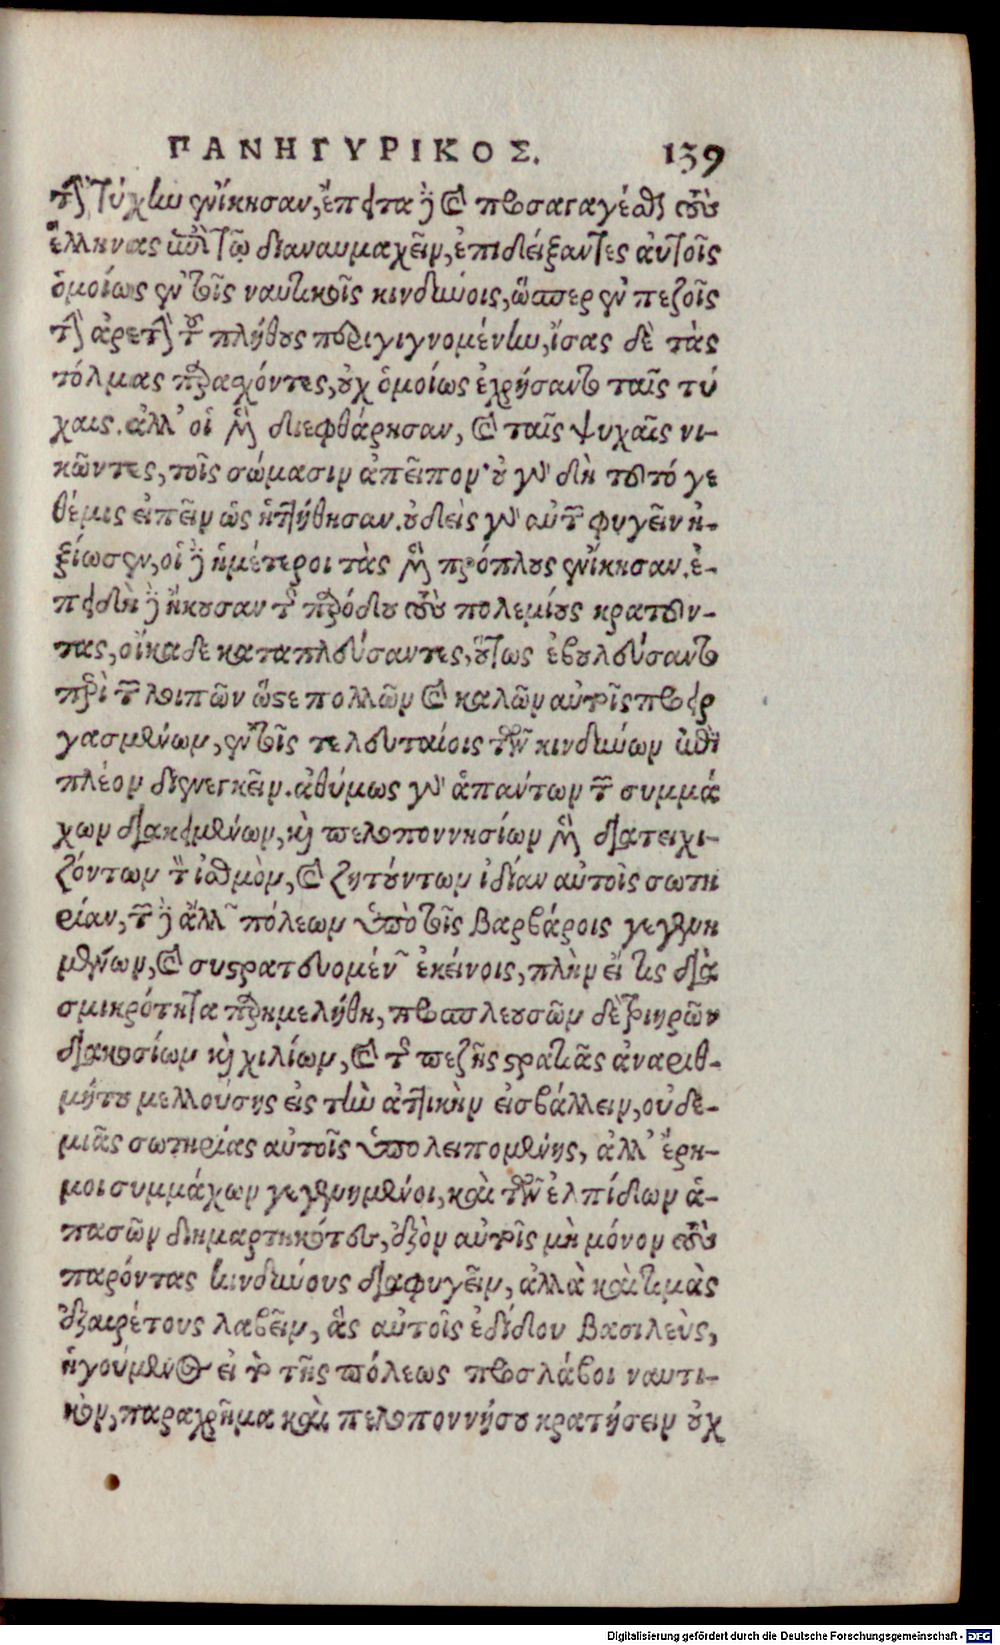 ΠΑΝΗΓΥΡΙΚΟΣ. 139
τὴν τύχην ἐνίκησαν, ἔπειτα δὲ καὶ προσαγαγέσθαι τοὺς
ἕλληνας ἐπὶ τῷ διαναυμαχεῖν, ἐπιδείξαντες αὐτοῖς
ὁμοίως ἐν τοῖς ναυτικοῖς κινδύνοις, ὥσπερ ἐν πεζοῖς
τὴν ἀρετὴν τοῦ πλήθους περιγιγνομένην, ἴσας δὲ τὰς
τόλμας παρασχόντες, οὐχ ὁμοίως ἐχρήσαντο ταῖς τύ
χαις. ἀλλ' οἱ μὲν διεφθάρησαν, καὶ ταῖς ψυχαῖς νι-
κῶντες, τοῖς σώμασιν ἀπεῖπον· οὐ γὰρ δὴ τοῦτό γε
θέμις εἰπεῖν ὡς ἡττήθησαν. οὐδεὶς γὰρ αὐτῶν φυγεῖν ἠ-
ξίωσεν, οἱ δὲ ἡμέτεροι τὰς μὲν πρόπλους ἐνίκησαν. ἐ-
πειδὴ δὲ ἤκουσαν τῆς παρόδου τοὺς πολεμίους κρατοῦν-
τας, οἴκαδε καταπλεύσαντες, οὕτως ἐβουλεύσαντο
περὶ τῶν λοιπῶν ὥστε πολλῶν καὶ καλῶν αὐτοῖς προειρ
γασμένων, ἐν τοῖς τελευταίοις τῶν κινδύνων ἐπὶ
πλέον διενεγκεῖν. ἀθύμως γὰρ ἁπάντων τῶν συμμά
χων διακειμένων, καὶ πελοποννησίων μὲν διατειχι-
ζόντων τὸν ἰσθμὸν, καὶ ζητούντων ἰδίαν αὐτοῖς σωτη
ρίαν, τῶν δὲ ἄλλων πόλεων ὑπὸ τοῖς βαρβάροις γεγενη
μένων, καὶ συστρατευομένων ἐκείνοις, πλὴν εἴ τις διὰ
σμικρότητα παρημελήθη, προσπλευσῶν δὲ τριηρῶν
διακοσίων καὶ χιλίων, καὶ τῆς πεζῆς στρατιᾶς ἀναριθ-
μήτου μελλούσης εἰς τὴν ἀττικὴν εἰσβάλλειν, οὐδε-
μιᾶς σωτηρίας αὐτοῖς ὑπολειπομένης, ἀλλ' ἔρη-
μοι συμμάχων γεγενημένοι, καὶ τῶν ἐλπίδων ἁ-
πασῶν διημαρτηκότες, ἐξὸν αὐτοῖς μὴ μόνον τοὺς
παρόντας κινδύνους διαφυγεῖν, ἀλλὰ καὶ τιμὰς
ἐξαιρέτους λαβεῖν, ἃς αὐτοῖς ἐδίδου βασιλεὺς,
ἡγούμενος εἰ τὸ τῆς πόλεως προσλάβοι ναυτι-
κὸν, παραχρῆμα καὶ πελοποννήσου κρατήσειν οὐχ
Digitalisierung gefördert durch die Deutsche Forschungsgemeinschaft - DFG